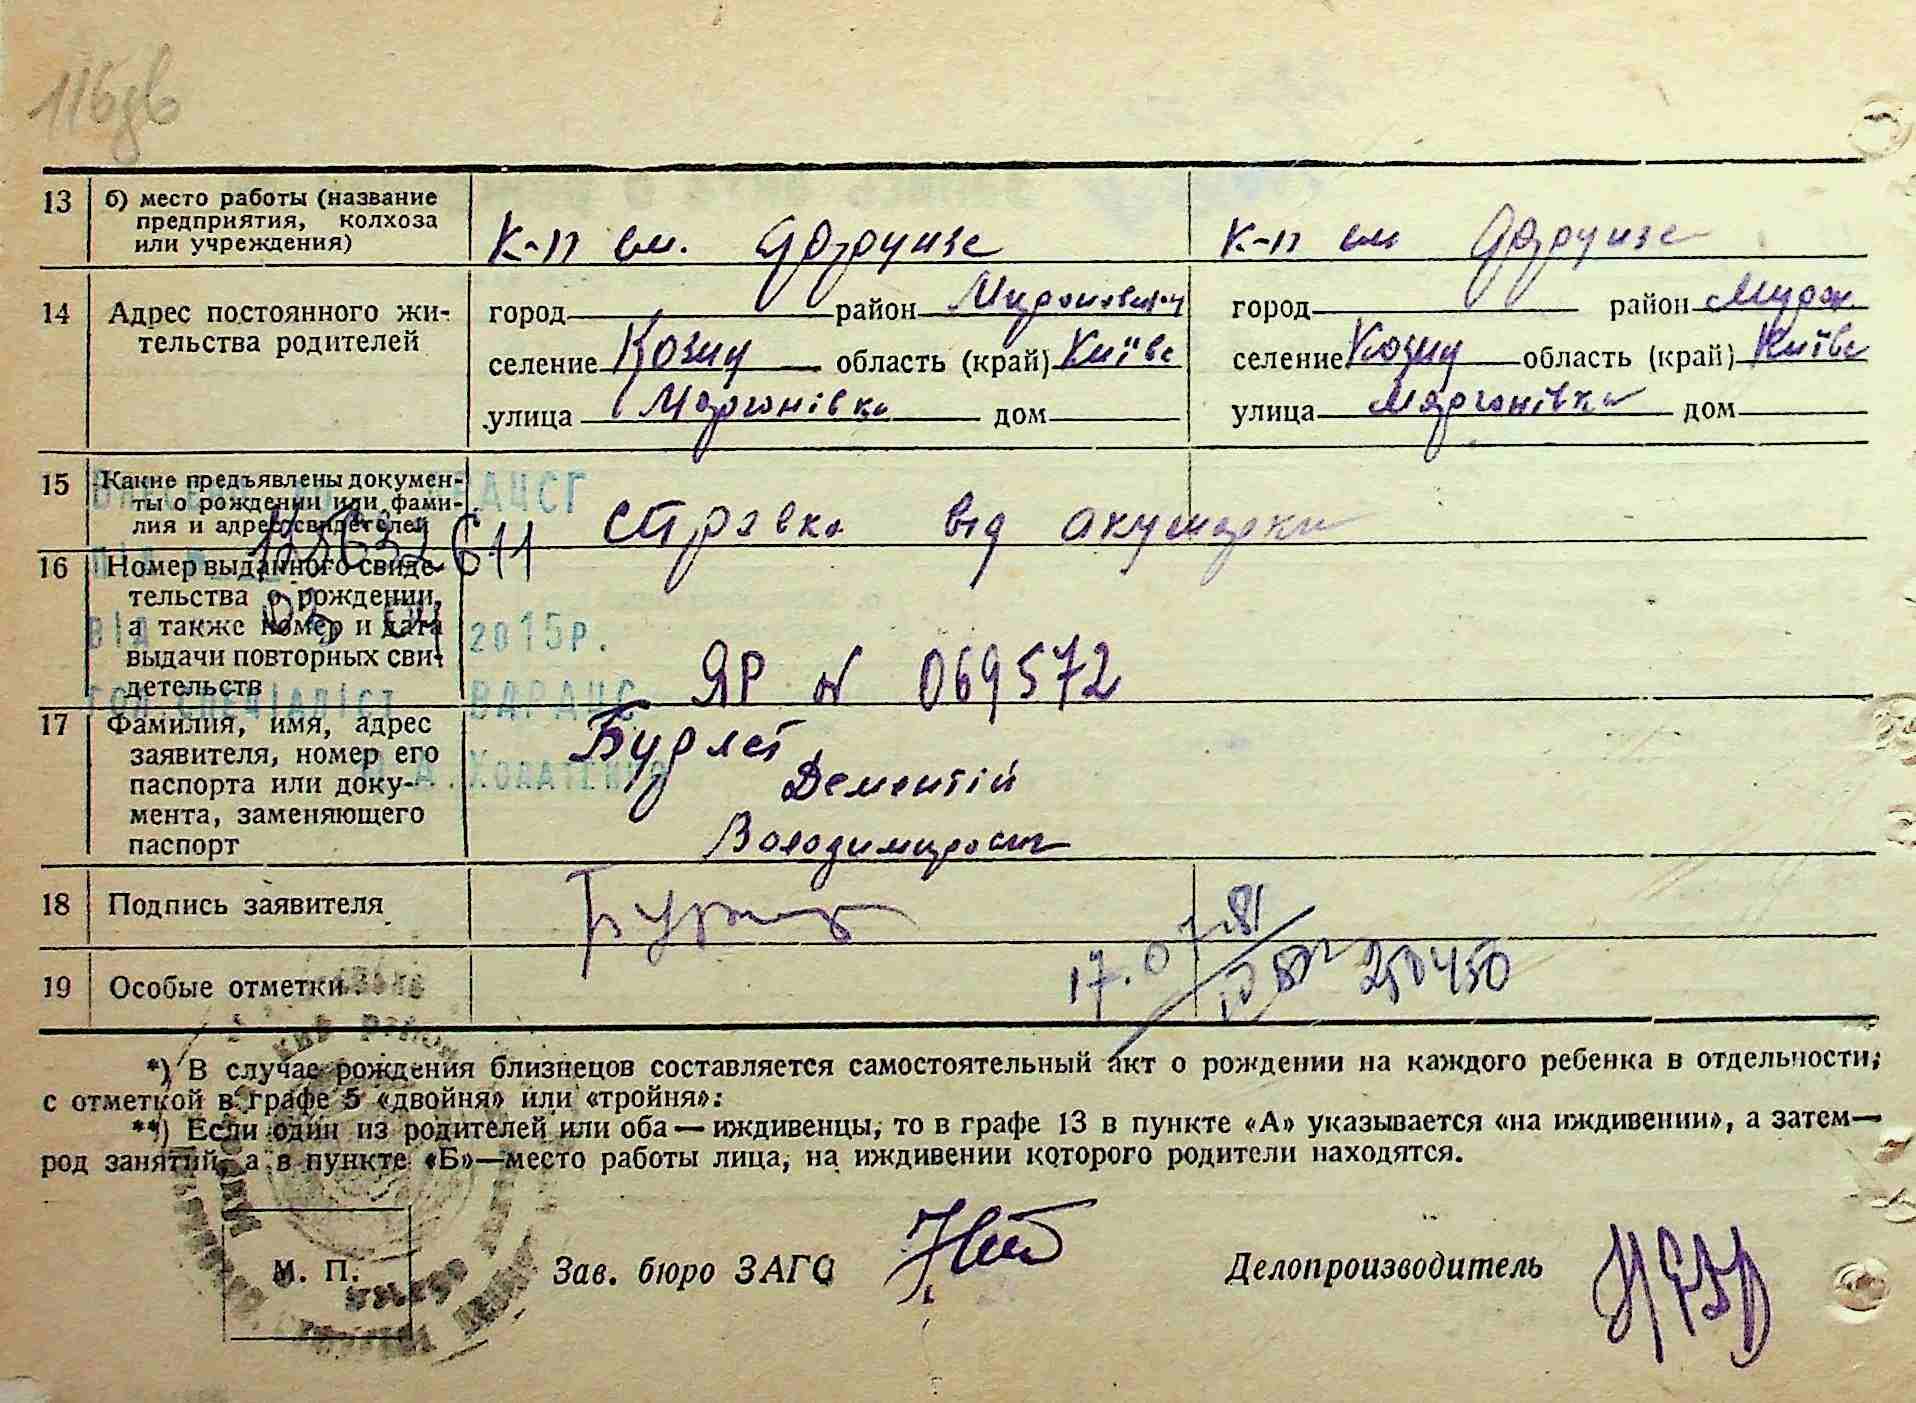 13 б) место работы (название
предприятия, колхоза
или учреждения)
к-п ім. Фрунзе к-п ім Фрунзе
14 Адрес постоянного жи-
тельства родителей
город район Миронівський город район Мирон
селение Козин область (край) Київс селение Козин область (край) Київс
улица Маръянівка дом улица Маръянівка дом
15 Какие предъявлены докумен-
ты о рождении или фами-
лия и адрес свидетелей
справка від акушерки
16 Номер выданного свиде-
тельства о рождении,
а также номер и дата
выдачи повторных сви-
детельств
ЯР № 069572
від 2015р.
ВДРАЦС
17 Фамилия, имя, адрес
заявителя, номер его
паспорта или доку-
мента, заменяющего
паспорт
Дементій
Володимирович
18 Подпись заявителя
19 Особые отметки
17.07.81 250450
*) В случае рождения близнецов составляется самостоятельный акт о рождении на каждого ребенка в отдельности,
с отметкой в графе 5 «двойня» или «тройня».
**) Если один из родителей или оба — иждивенцы, то в графе 13 в пункте «А» указывается «на иждивении», а затем—
род занятий, а в пункте «Б»—место работы лица, на иждивении которого родители находятся.
М. П. Зав. бюро ЗАГС Делопроизводитель